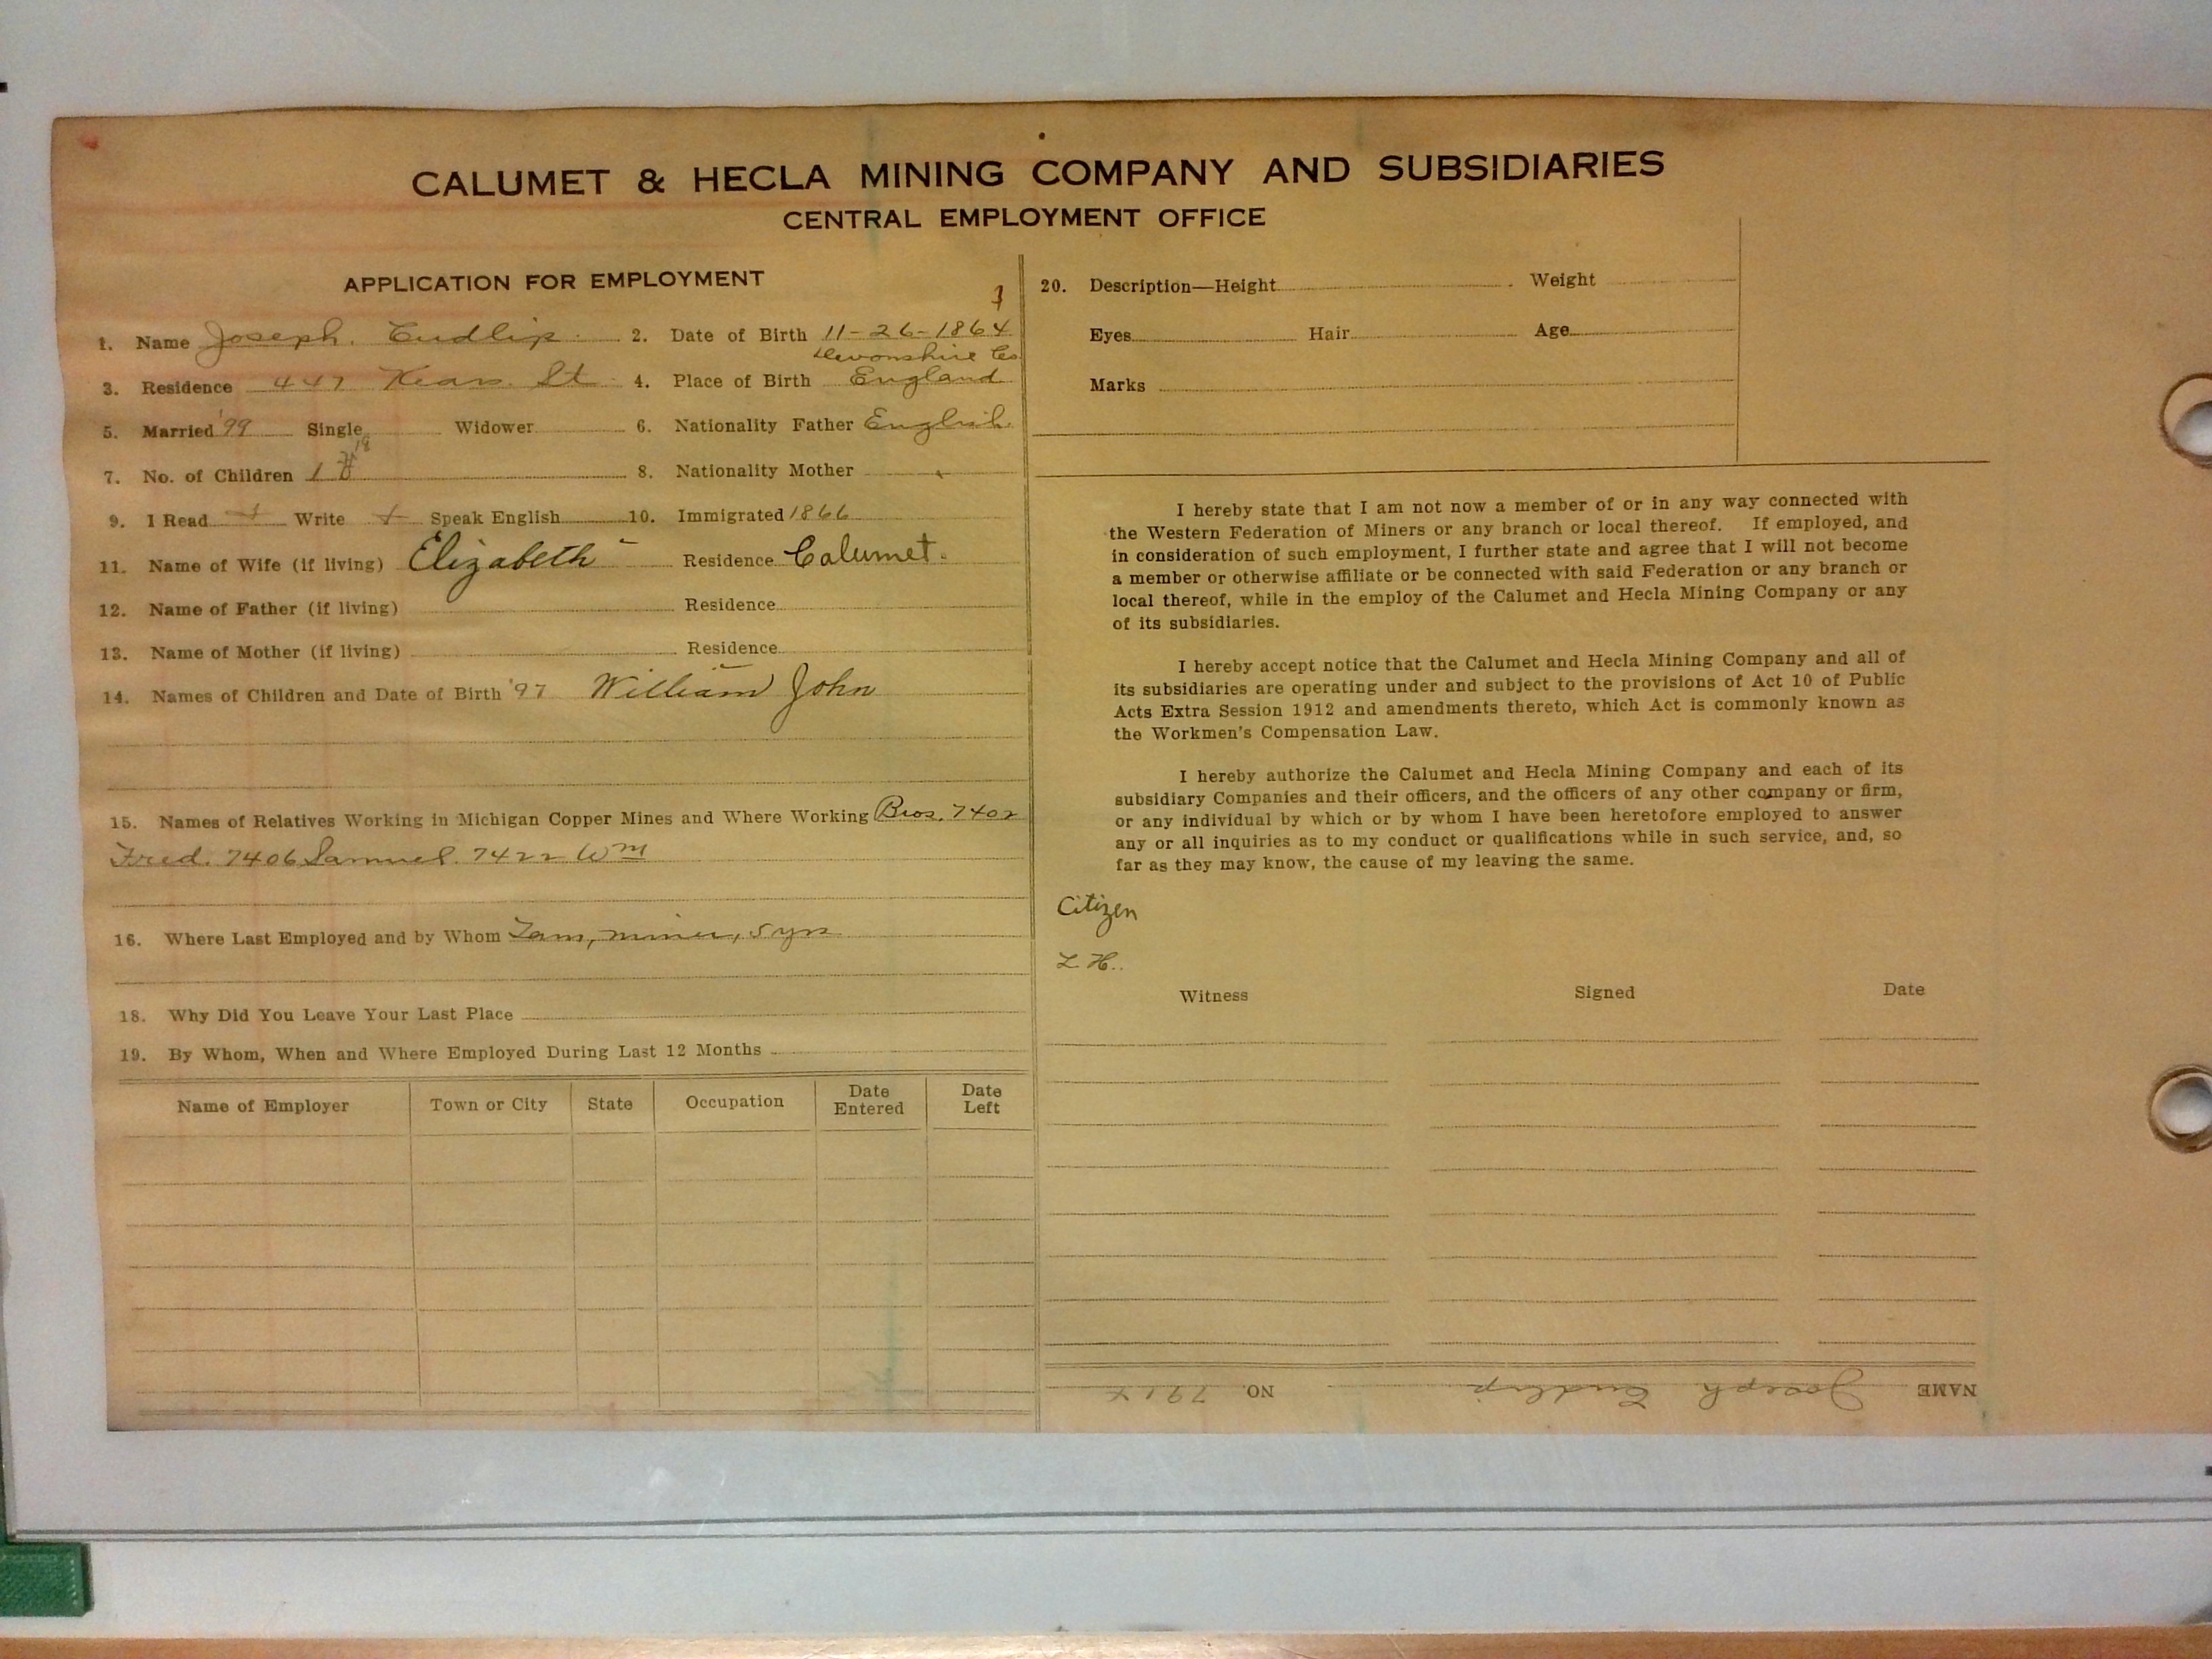 CALUMET & HECLA MINING COMPANY AND SUBSIDIARIES
CENTRAL EMPLOYMENT OFFICE
APPLICATION FOR EMPLOYMENT
1. Name Joseph. Cudlip. 2. Date of Birth 11-26-1864
3. Residence 447 Kears. St 4. Place of Birth Devonshire Co England
5. Married '99 Single Widower 6. Nationality Father English
7. No. of Children 1 8. Nationality Mother
9. I Read + Write + Speak English 10. Immigrated 1866
11. Name of Wife (if living) Elizabeth Residence Calumet.
12. Name of Father (if living) Residence
13. Name of Mother (if living) Residence
14. Names of Children and Date of Birth '97 William John
15. Names of Relatives Working in Michigan Copper Mines and Where Working Bros. 7402
Fred. 7406 Samuel. 7422 Wm
16. Where Last Employed and by Whom Tam, miner, 5 yrs
18. Why Did You Leave Your Last Place
19. By Whom, When and Where Employed During Last 12 Months
Name of Employer Town or City State Occupation Date Entered Date Left
20. Description—Height Weight
Eyes Hair Age
Marks
I hereby state that I am not now a member of or in any way connected with
the Western Federation of Miners or any branch or local thereof. If employed, and
in consideration of such employment, I further state and agree that I will not become
a member or otherwise affiliate or be connected with said Federation or any branch or
local thereof, while in the employ of the Calumet and Hecla Mining Company or any
of its subsidiaries.
I hereby accept notice that the Calumet and Hecla Mining Company and all of
its subsidiaries are operating under and subject to the provisions of Act 10 of Public
Acts Extra Session 1912 and amendments thereto, which Act is commonly known as
the Workmen's Compensation Law.
I hereby authorize the Calumet and Hecla Mining Company and each of its
subsidiary Companies and their officers, and the officers of any other company or firm,
or any individual by which or by whom I have been heretofore employed to answer
any or all inquiries as to my conduct or qualifications while in such service, and, so
far as they may know, the cause of my leaving the same.
Citizen
L. H.
Witness Signed Date
NAME Joseph Cudlip NO. 7914